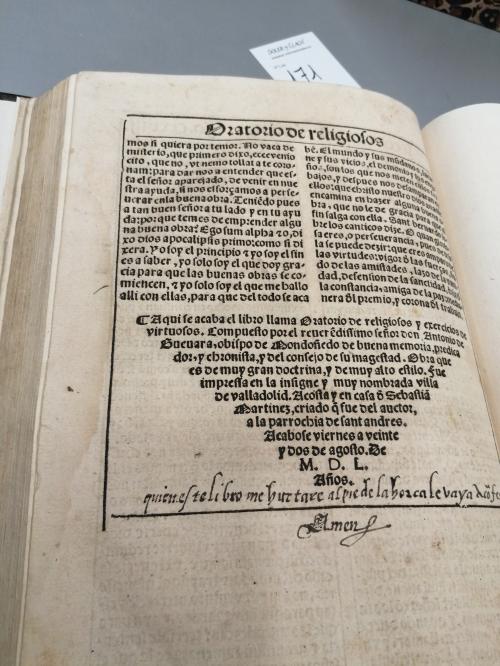 SOLER Y LLACH
Oratorio de religiosos
mos si quiera por temor. No vaca de
misterio, que primero dixo, ecce venio
cito, que no, vt nemo tollat a te coro-
nam: para dar nos a entender que es-
ta el señor aparejado, de venir en nue
stra ayuda, si nos esforçamos a perse-
uerar en la buena obra. Teniēdo pues
a tan buen señor a tu lado y en tu ayu
da: por que temes de emprender algu
na buena obra? Ego sum alpha ⁊ o, di
xo dios apocalipsis primo: como si di
xera. Yo soy el principio ⁊ yo soy el fin
es a saber, yo solo soy el que doy gra-
cia para que las buenas obras se co-
miencen, ⁊ yo solo soy el que me hallo
alli con ellas, para que del todo se aca
bē. El mundo y sus mūdanos, la
ne y sus vicios, el demonio y
ño, son los que nos meten en
bajos, y despues nos
ellos: que christo nuestro dios
encamina en hazer alguna buena
bra, que no le de gracia para que
fin salga con ella. Sant Bernar
bre los canticos dize. O quan
sa eres, o perseuerancia, pues
la se puede dezir: que eres
las virtudes: vigor d̄ las fuerças
do de las amistades, lazo de
dad, defension de la sanctidad
la constancia: amiga de la paz
nera d̄l premio, y corona d̄l trabajo
¶ Aqui se acaba el libro llama Oratorio de religiosos y exercicios de
virtuosos. Compuesto por el reuerēdissimo señor don Antonio de
Gueuara, obispo de Mondoñedo de buena memoria, predica
dor: y chronista, y del consejo de su magestad. Obra que
es de muy gran doctrina, y de muy alto estilo. Fue
impressa en la insigne y muy nombrada villa
de valladolid. Acosta y en casa d̄ Sebastiā
Martinez, criado q̄ fue del auctor,
a la parrochia de sant andres.
Acabose viernes a veinte
y dos de agosto. De
M. D. L.
Años.
quien este libro me hurtare al pie de la horca le vaya
Amen